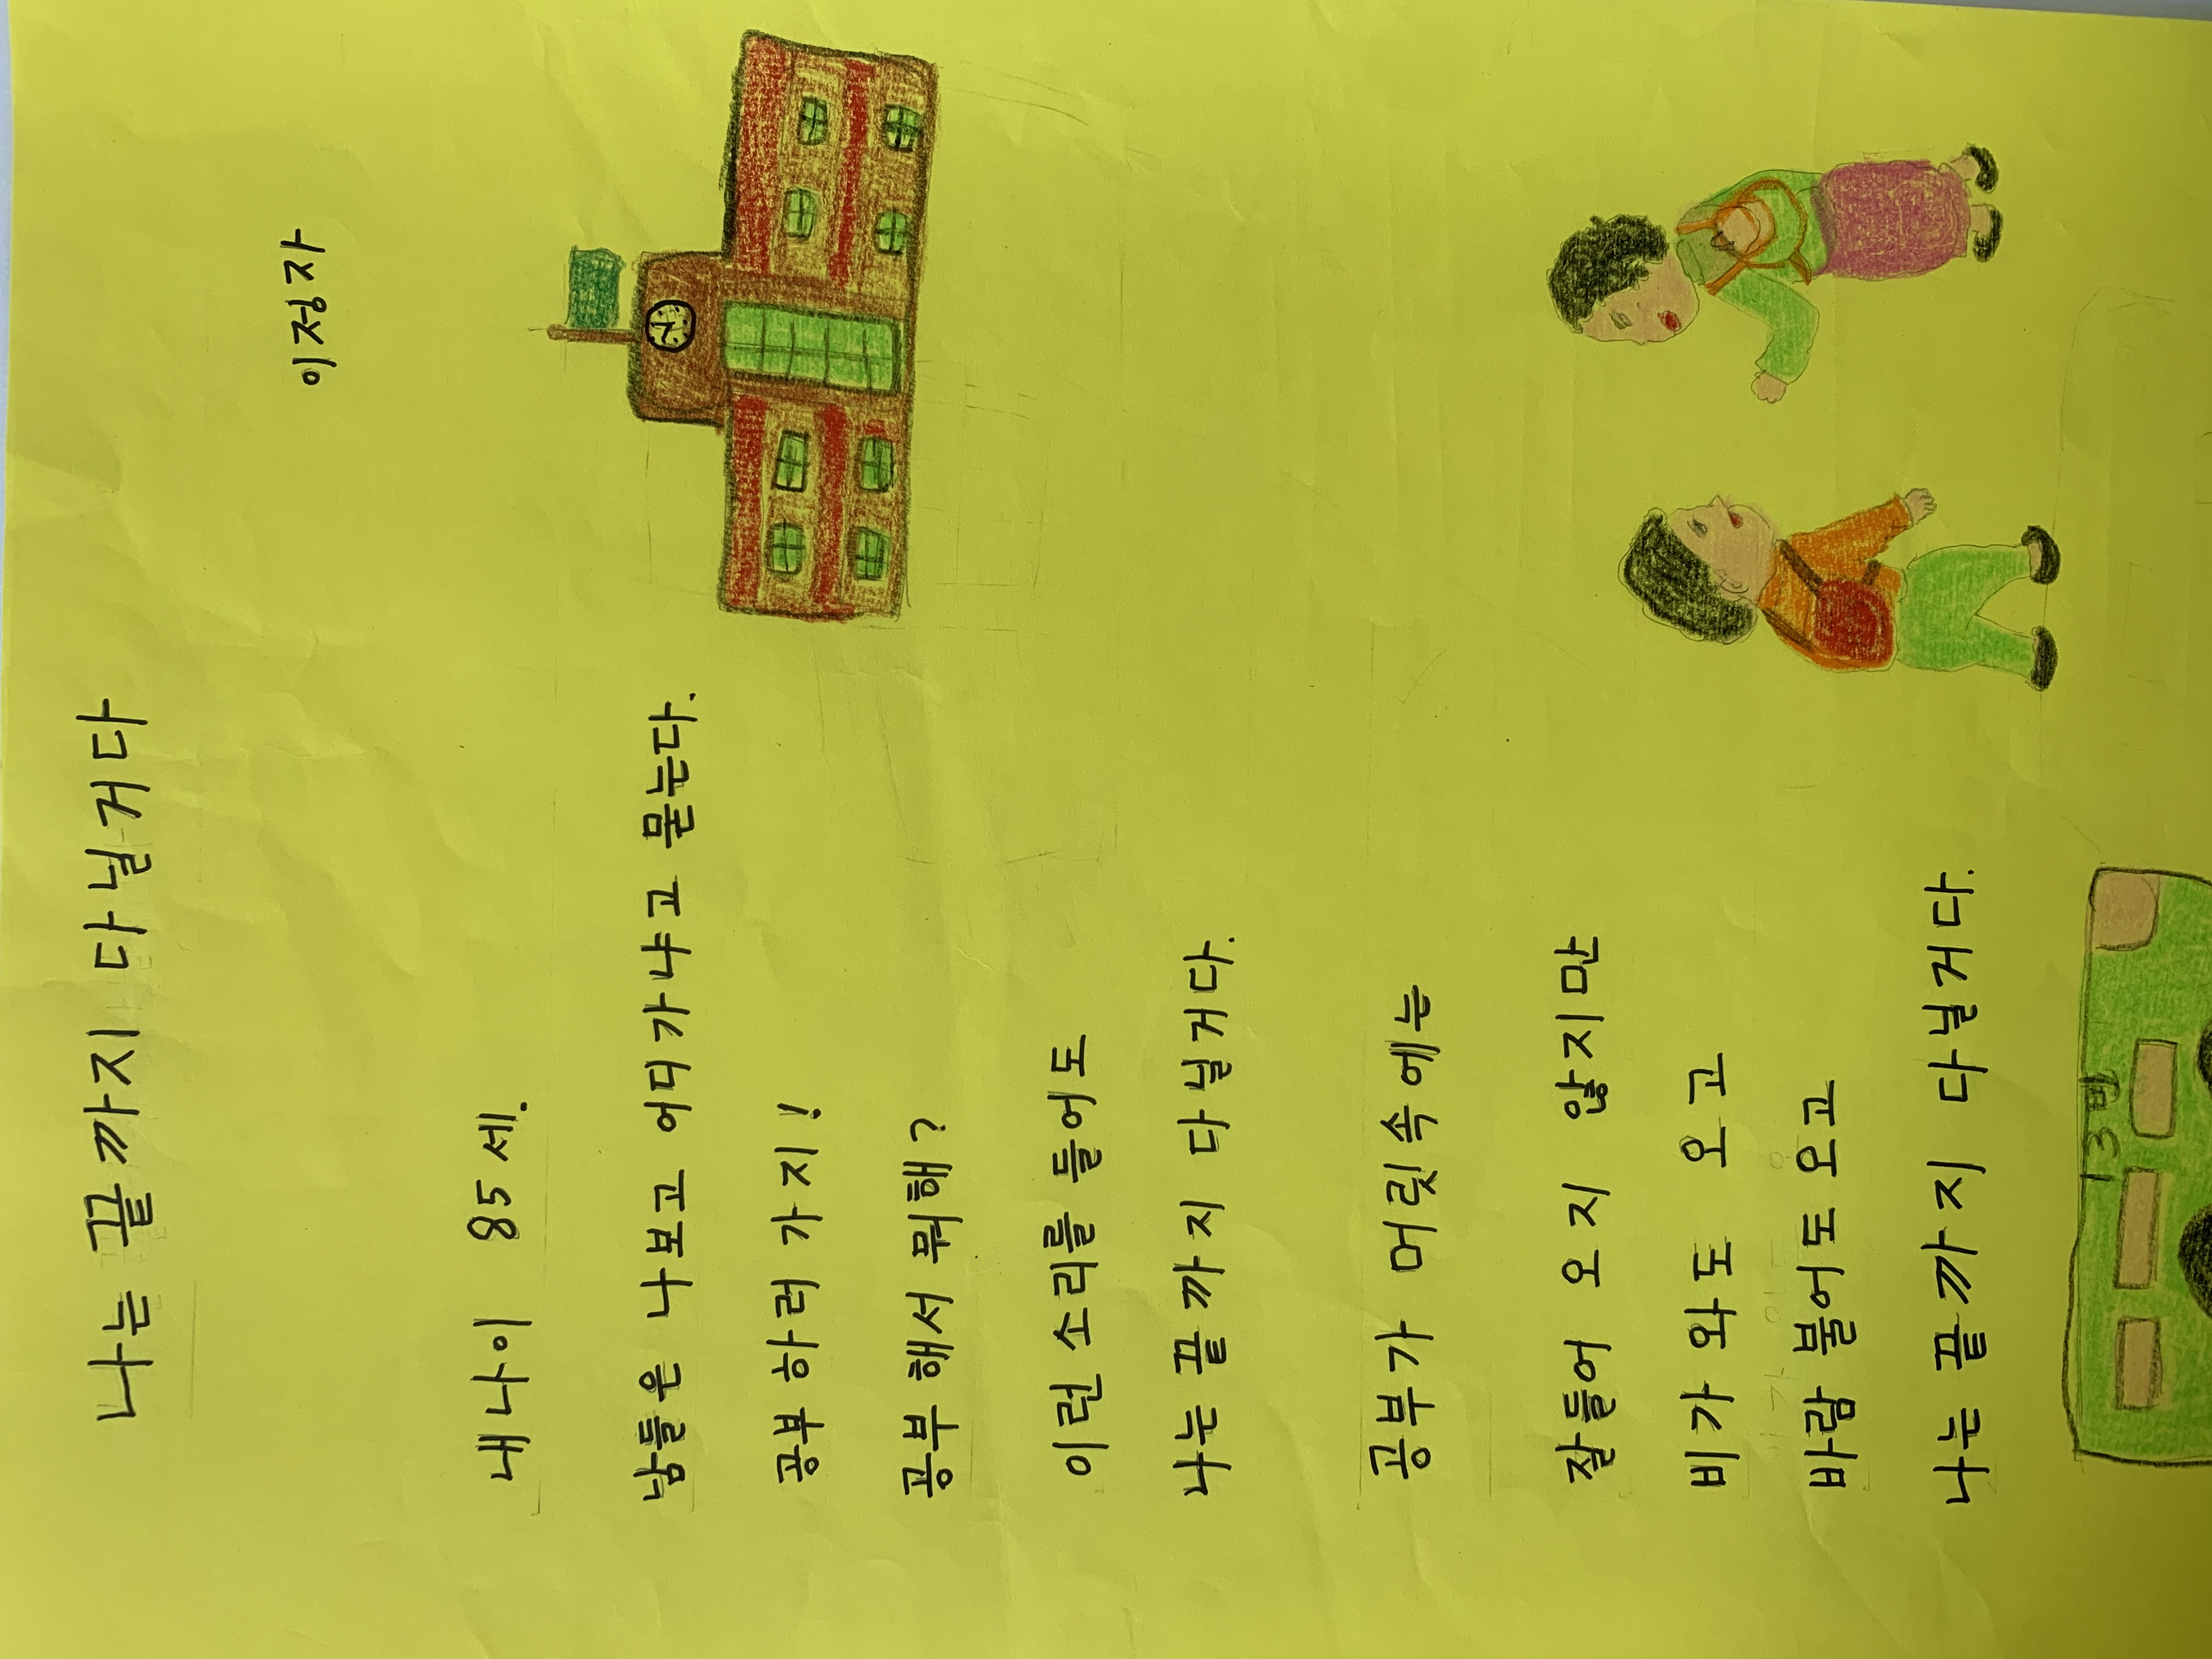 나는 끝까지 다닐거다
이정자
내 나이 85세.
남들은 나보고 어디가냐고 묻는다.
공부하러 가지!
공부해서 뭐해?
이런 소리를 들어도
나는 끝까지 다닐거다.
공부가 머릿속에는
잘들어 오지 않지만
비가 와도 오고
바람 불어도 오고
나는 끝까지 다닐거다.
13번